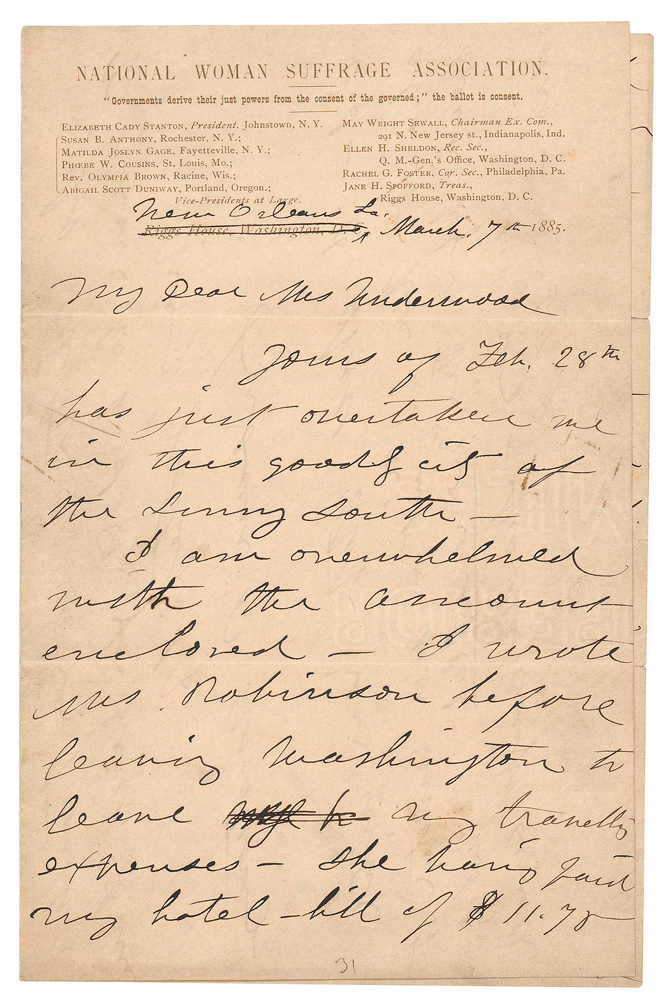 NATIONAL WOMAN SUFFRAGE ASSOCIATION.
"Governments derive their just powers from the consent of the governed;" the ballot is consent.
ELIZABETH CADY STANTON, President. Johnstown, N. Y.
SUSAN B. ANTHONY, Rochester, N. Y.;
MATILDA JOSLYN GAGE, Fayetteville, N. Y.;
PHŒBE W. COUSINS, St. Louis, Mo.;
Rev. OLYMPIA BROWN, Racine, Wis.;
ABIGAIL SCOTT DUNIWAY, Portland, Oregon.;
Vice-Presidents at Large.
MAY WRIGHT SEWALL, Chairman Ex. Com.,
291 N. New Jersey st., Indianapolis, Ind.
ELLEN H. SHELDON, Rec. Sec.,
Q. M.-Gen's Office, Washington, D. C.
RACHEL G. FOSTER, Cor. Sec., Philadelphia, Pa.
JANE H. SPOFFORD, Treas.,
Riggs House, Washington, D. C.
New Orleans La.
Riggs House, Washington, D. C., March. 7th 1885.
My Dear Mrs Underwood
Yours of Feb. 28th
has just overtaken me
in this good city of
the sunny south —
I am overwhelmed
with the amount
enclosed — I wrote
Mrs. Robinson before
leaving Washington to
leave my travelling
expenses — she having paid
my hotel-bill of $11.75
31